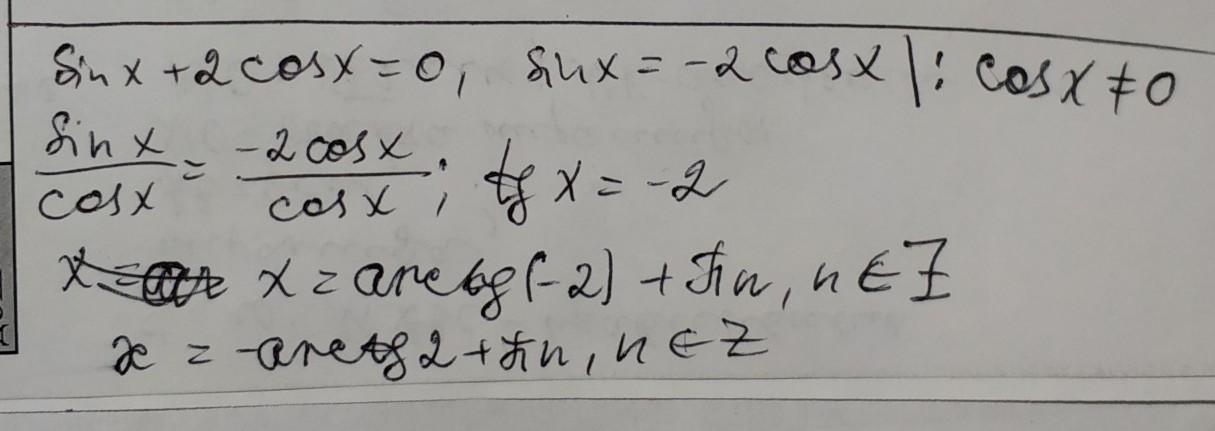 sin x + 2 cos x = 0, sin x = -2 cos x | : cos x ≠ 0
sin x / cos x = -2 cos x / cos x ; tg x = -2
x = arctg(-2) + πn, n ∈ Z
x = -arctg 2 + πn, n ∈ Z